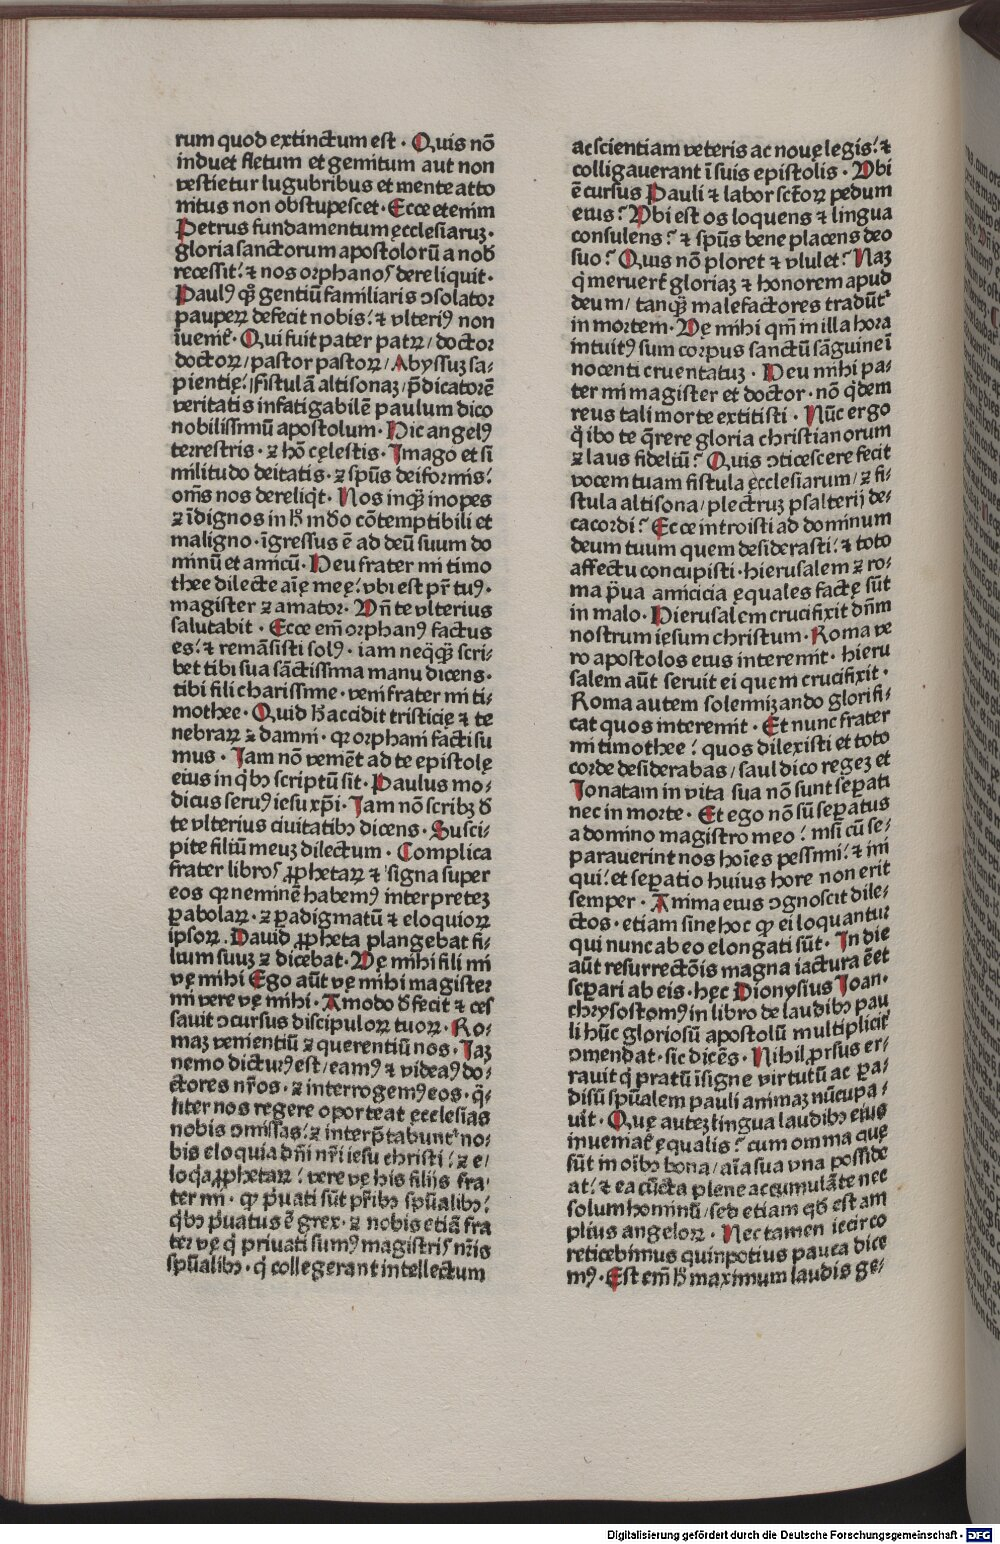 rum quod extinctum est · Quis nō
induet fletum et gemitum aut non
vestietur lugubribus et mente atto
nitus non obstupescet · Ecce etenim
Petrus fundamentum ęcclesiaruꝫ ·
gloria sanctorum apostolorū a nob̄
recessit: ⁊ nos orphanos dereliquit ·
Paulꝰ qꝫ gentiū familiaris ↄsolator
pauperꝝ defecit nobis: ⁊ vlteriꝰ non
īuenit̄ · Qui fuit pater patrꝝ / doctor
doctoꝝ / pastor pastoꝝ / Abyssuꝫ sa⸗
pientię: fistulā altisonaꝫ / p̄dicatorē
veritatis infatigabilē paulum dico
nobilissimū apostolum · Hic angelꝰ
terrestris · ⁊ hō cęlestis · Imago et si
militudo deitatis · ⁊ spūs deiformis:
om̄s nos dereliq̇t · Nos inqꝫ inopes
⁊ īdignos in h̄ mūdo cōtemptibili et
maligno · īgressus ē ad deū suum do
minū et amicū · Heu frater mi timo
thee dilecte aīę meę: vbi est pr̄ tuꝰ ·
magister ⁊ amator · Vn̄ te vlterius
salutabit · Ecce em̄ orphanꝰ factus
es: ⁊ remāsisti solꝰ · iam neq̄qꝫ scri⸗
bet tibi sua sāctissima manu dicens ·
tibi fili charissime · veni frater mi ti⸗
mothee · Quid h̄ accidit tristicię ⁊ te
nebraꝝ ⁊ damni · qꝛ orphani facti su
mus · Iam nō veniēt ad te epistolę
eius in q̇bꝫ scriptū sit · Paulus mo⸗
dicus seruꝰ iesu xp̄i · Iam nō scribꝫ ꝺ̄
te vlterius ciuitatibꝫ dicens · Susci⸗
pite filiū meuꝫ dilectum · Complica
frater libros ꝓphetaꝝ ⁊ signa super
eos qꝛ neminē habemꝰ interpreteꝫ
ꝑabolaꝝ · ⁊ ꝑadigmatū ⁊ eloquioꝝ
ipsoꝝ · Dauid ꝓpheta plangebat fi⸗
lium suuꝫ ⁊ dicebat · Vę mihi fili mi
vę mihi Ego aūt vę mihi magister
mi vere vę mihi · Amodo ꝺ̄fecit ⁊ ces
sauit ↄcursus discipuloꝝ tuoꝝ · Ro⸗
maꝫ venientiū ⁊ querentiū nos · Iaꝫ
nemo dicturꝰ est / eamꝰ ⁊ videaꝰ do⸗
ctores nr̄os · ⁊ interrogemꝰ eos · q̄⸗
liter nos regere oporteat ęcclesias
nobis ↄmissas: ⁊ interp̄tabunt̄ no⸗
bis eloquia dn̄i nr̄i iesu christi: ⁊ e/
loq̇a ꝓphetaꝝ: vere vę his filijs fra⸗
ter mi · qꝫ ṗuati sūt pr̄ibꝫ spūalibꝫ:
q̇bꝫ ṗuatus ē grex · ⁊ nobis etiā fra
ter vę q̇ priuati sumꝰ magistris nr̄is
spūalibꝫ · q̇ collegerant intellectum
ac scientiam veteris ac nouę legis: ⁊
colligauerant ī suis epistolis · Vbi
ē cursus Pauli ⁊ labor sctōꝝ pedum
eius? Vbi est os loquens ⁊ lingua
consulens? ⁊ spūs bene placens deo
suo? Quis nō ploret ⁊ vlulet? Naꝫ
q̇ meruert̄ gloriaꝫ ⁊ honorem apud
deum / tanqꝫ malefactores tradūt̄
in mortem · Vę mihi qm̄ in illa hora
intuitꝰ sum corpus sanctū sāguine ī
nocenti cruentatuꝫ · Heu mihi pa⸗
ter mi magister et doctor · nō q̇dem
reus tali morte extitisti · Nūc ergo
q̇ ibo te q̄rere gloria christianorum
⁊ laus fideliū? Quis ↄticescere fecit
vocem tuam fistula ęcclesiarum / ⁊ fi⸗
stula altisona / plectruꝫ psalterij de⸗
cacordi? Ecce introisti ad dominum
deum tuum quem desiderasti: ⁊ toto
affectu concupisti · hierusalem ⁊ ro⸗
ma p̄ua amicicia ęquales factę sūt
in malo · Hierusalem crucifixit dn̄m
nostrum iesum christum · Roma ve
ro apostolos eius interemit · hieru
salem aūt seruit ei quem crucifixit ·
Roma autem solemnizando glorifi⸗
cat quos interemit · Et nunc frater
mi timothee: quos dilexisti et toto
corde desiderabas / saul dico regeꝫ et
Ionatam in vita sua nō sunt seꝑati
nec in morte · Et ego nō sū seꝑatus
a domino magistro meo: nisi cū se⸗
parauerint nos hoīes pessimi: ⁊ ini
qui: et seꝑatio huius hore non erit
semper · Anima eius ↄgnoscit dile⸗
ctos · etiam sine hoc qꝫ ei loquantur
qui nunc ab eo elongati sūt · In die
aūt resurrectōis magna iactura ēet
seꝑari ab eis · hęc Dionysius Ioan⸗
chrysostomꝰ in libro de laudibꝫ pau
li hūc gloriosū apostolū multiplicit̄
ↄmendat · sic dicēs · Nihil ꝓrsus er⸗
rauit q̇ pratū īsigne virtutū ac ꝑa⸗
disū spūalem pauli animaꝫ nūcupa⸗
uit · Quę auteꝫ lingua laudibꝫ eius
inueniat̄ ęqualis? cum omnia quę
sūt in oībꝫ bona / aīa sua vna posside
at: ⁊ ea cūcta plene accumulāte nec
solum hominū / sed etiam qḋ est am
plius angeloꝝ · Nec tamen iccirco
reticebimus quinpotius pauca dice
mꝰ · Est em̄ h̄ maximum laudis ge⸗
Digitalisierung gefördert durch die Deutsche Forschungsgemeinschaft - DFG